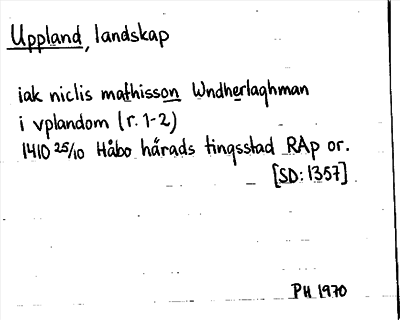 Uppland, landskap
iak niclis mathisson Wndherlaghman
i vplandom (r. 1-2)
1410 25/10 Håbo härads tingsstad RAp or.
[SD: 1357]
PH 1970